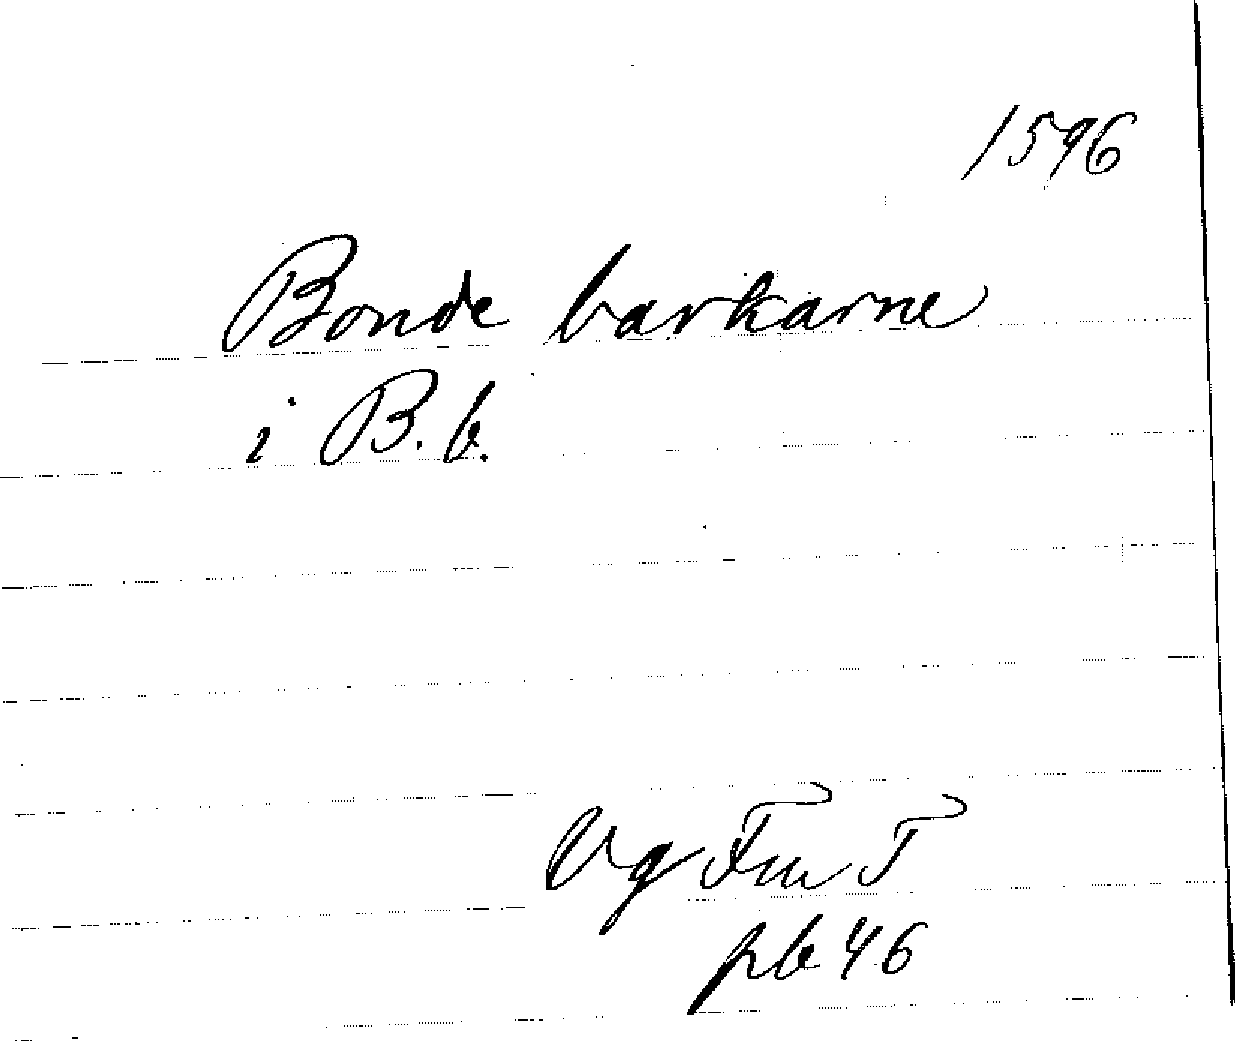 1596
Bonde barkarne
i B. b.
Vg Fru T
pb 46